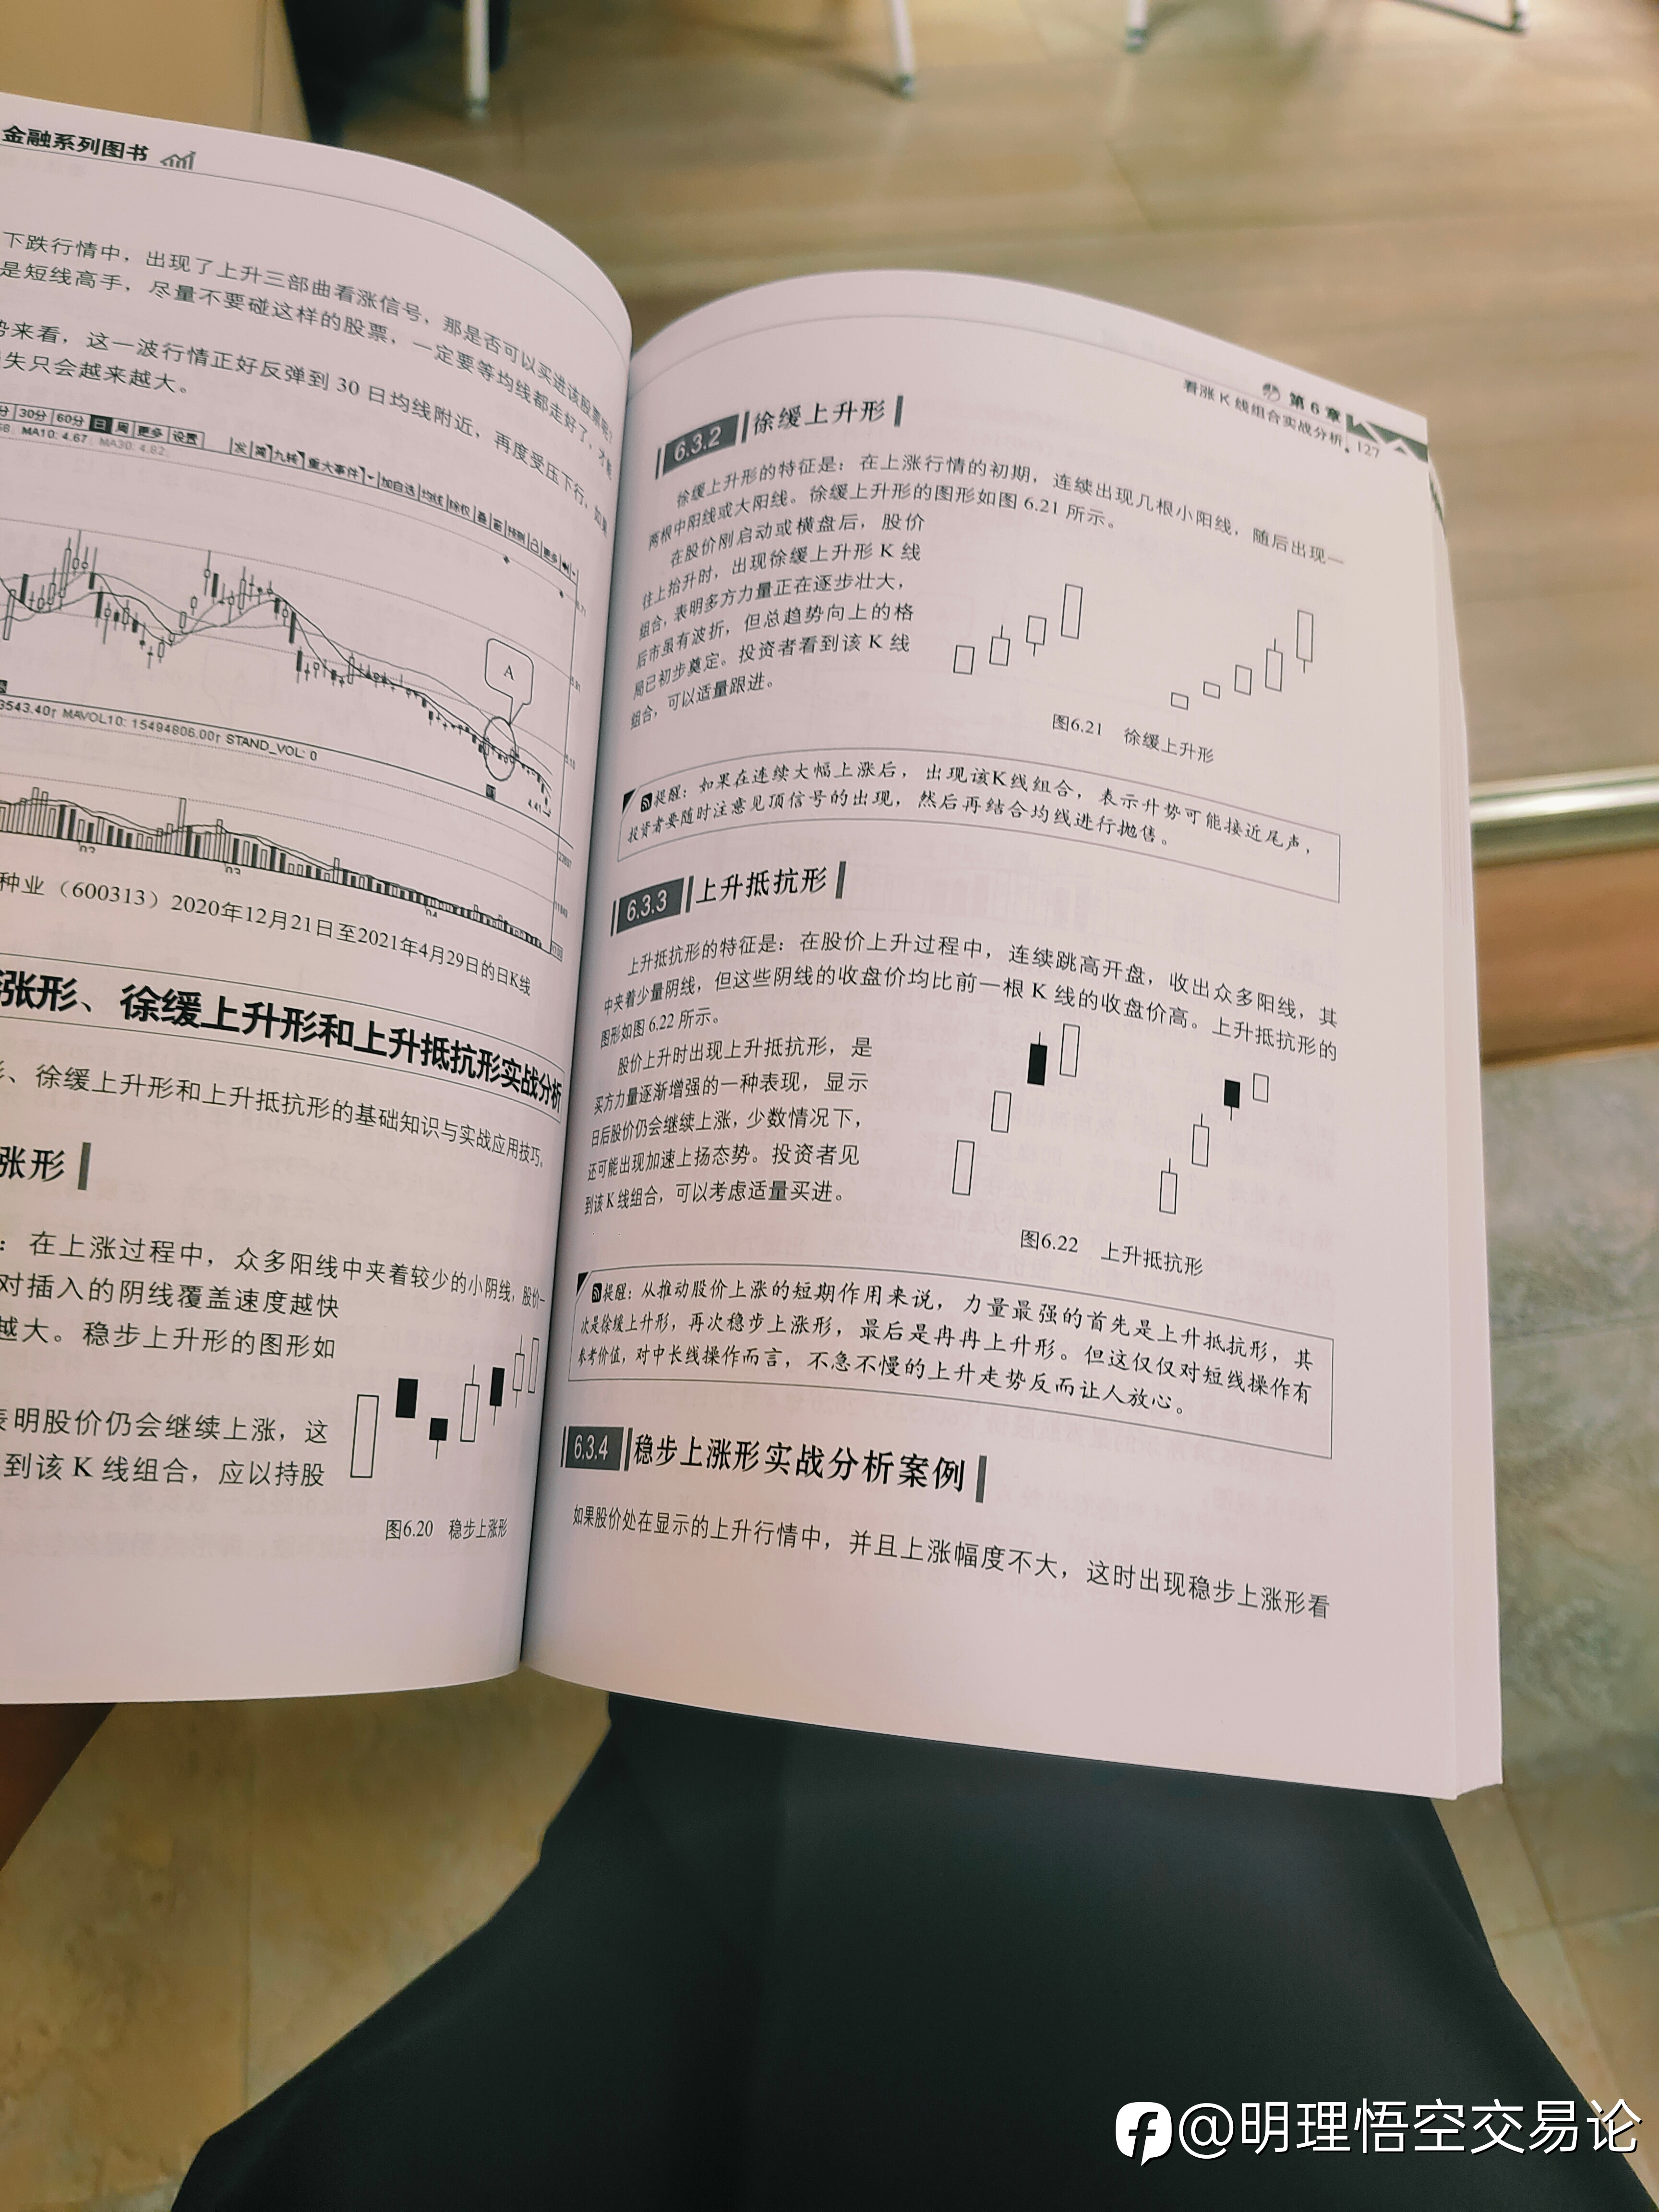 金融系列图书
下跌行情中，出现了上升三部曲看涨信号，那是否可以买进该股票呢？
是短线高手，尽量不要碰这样的股票，一定要等均线都走好了，才能
势来看，这一波行情正好反弹到 30 日均线附近，再度受压下行，如果
失只会越来越大。
分 30分 60分 日 周 更多 设置
发 简 九转 重大事件 加自选 均线 除权 叠 窗 预测 更多
MA10: 4.67 MA30: 4.82
A
4.41
3543.40↑ MAVOL10: 15494806.00↑ STAND_VOL: 0
02
03
04
种业（600313）2020年12月21日至2021年4月29日的日K线
涨形、徐缓上升形和上升抵抗形实战分析
、徐缓上升形和上升抵抗形的基础知识与实战应用技巧。
涨形
：在上涨过程中，众多阳线中夹着较少的小阴线，股价一
对插入的阴线覆盖速度越快
越大。稳步上升形的图形如
表明股价仍会继续上涨，这
到该 K 线组合，应以持股
图6.20 稳步上涨形
第 6 章
看涨 K 线组合实战分析 127
6.3.2 徐缓上升形
徐缓上升形的特征是：在上涨行情的初期，连续出现几根小阳线，随后出现一
两根中阳线或大阳线。徐缓上升形的图形如图 6.21 所示。
在股价刚启动或横盘后，股价
往上抬升时，出现徐缓上升形 K 线
组合，表明多方力量正在逐步壮大，
后市虽有波折，但总趋势向上的格
局已初步奠定。投资者看到该 K 线
组合，可以适量跟进。
图6.21 徐缓上升形
提醒：如果在连续大幅上涨后，出现该K线组合，表示升势可能接近尾声，
投资者要随时注意见顶信号的出现，然后再结合均线进行抛售。
6.3.3 上升抵抗形
上升抵抗形的特征是：在股价上升过程中，连续跳高开盘，收出众多阳线，其
中夹着少量阴线，但这些阴线的收盘价均比前一根 K 线的收盘价高。上升抵抗形的
图形如图 6.22 所示。
股价上升时出现上升抵抗形，是
买方力量逐渐增强的一种表现，显示
日后股价仍会继续上涨，少数情况下，
还可能出现加速上扬态势。投资者见
到该 K 线组合，可以考虑适量买进。
图6.22 上升抵抗形
提醒：从推动股价上涨的短期作用来说，力量最强的首先是上升抵抗形，其
次是徐缓上升形，再次稳步上涨形，最后是冉冉上升形。但这仅仅对短线操作有
参考价值，对中长线操作而言，不急不慢的上升走势反而让人放心。
6.3.4 稳步上涨形实战分析案例
如果股价处在显示的上升行情中，并且上涨幅度不大，这时出现稳步上涨形看
@明理悟空交易论